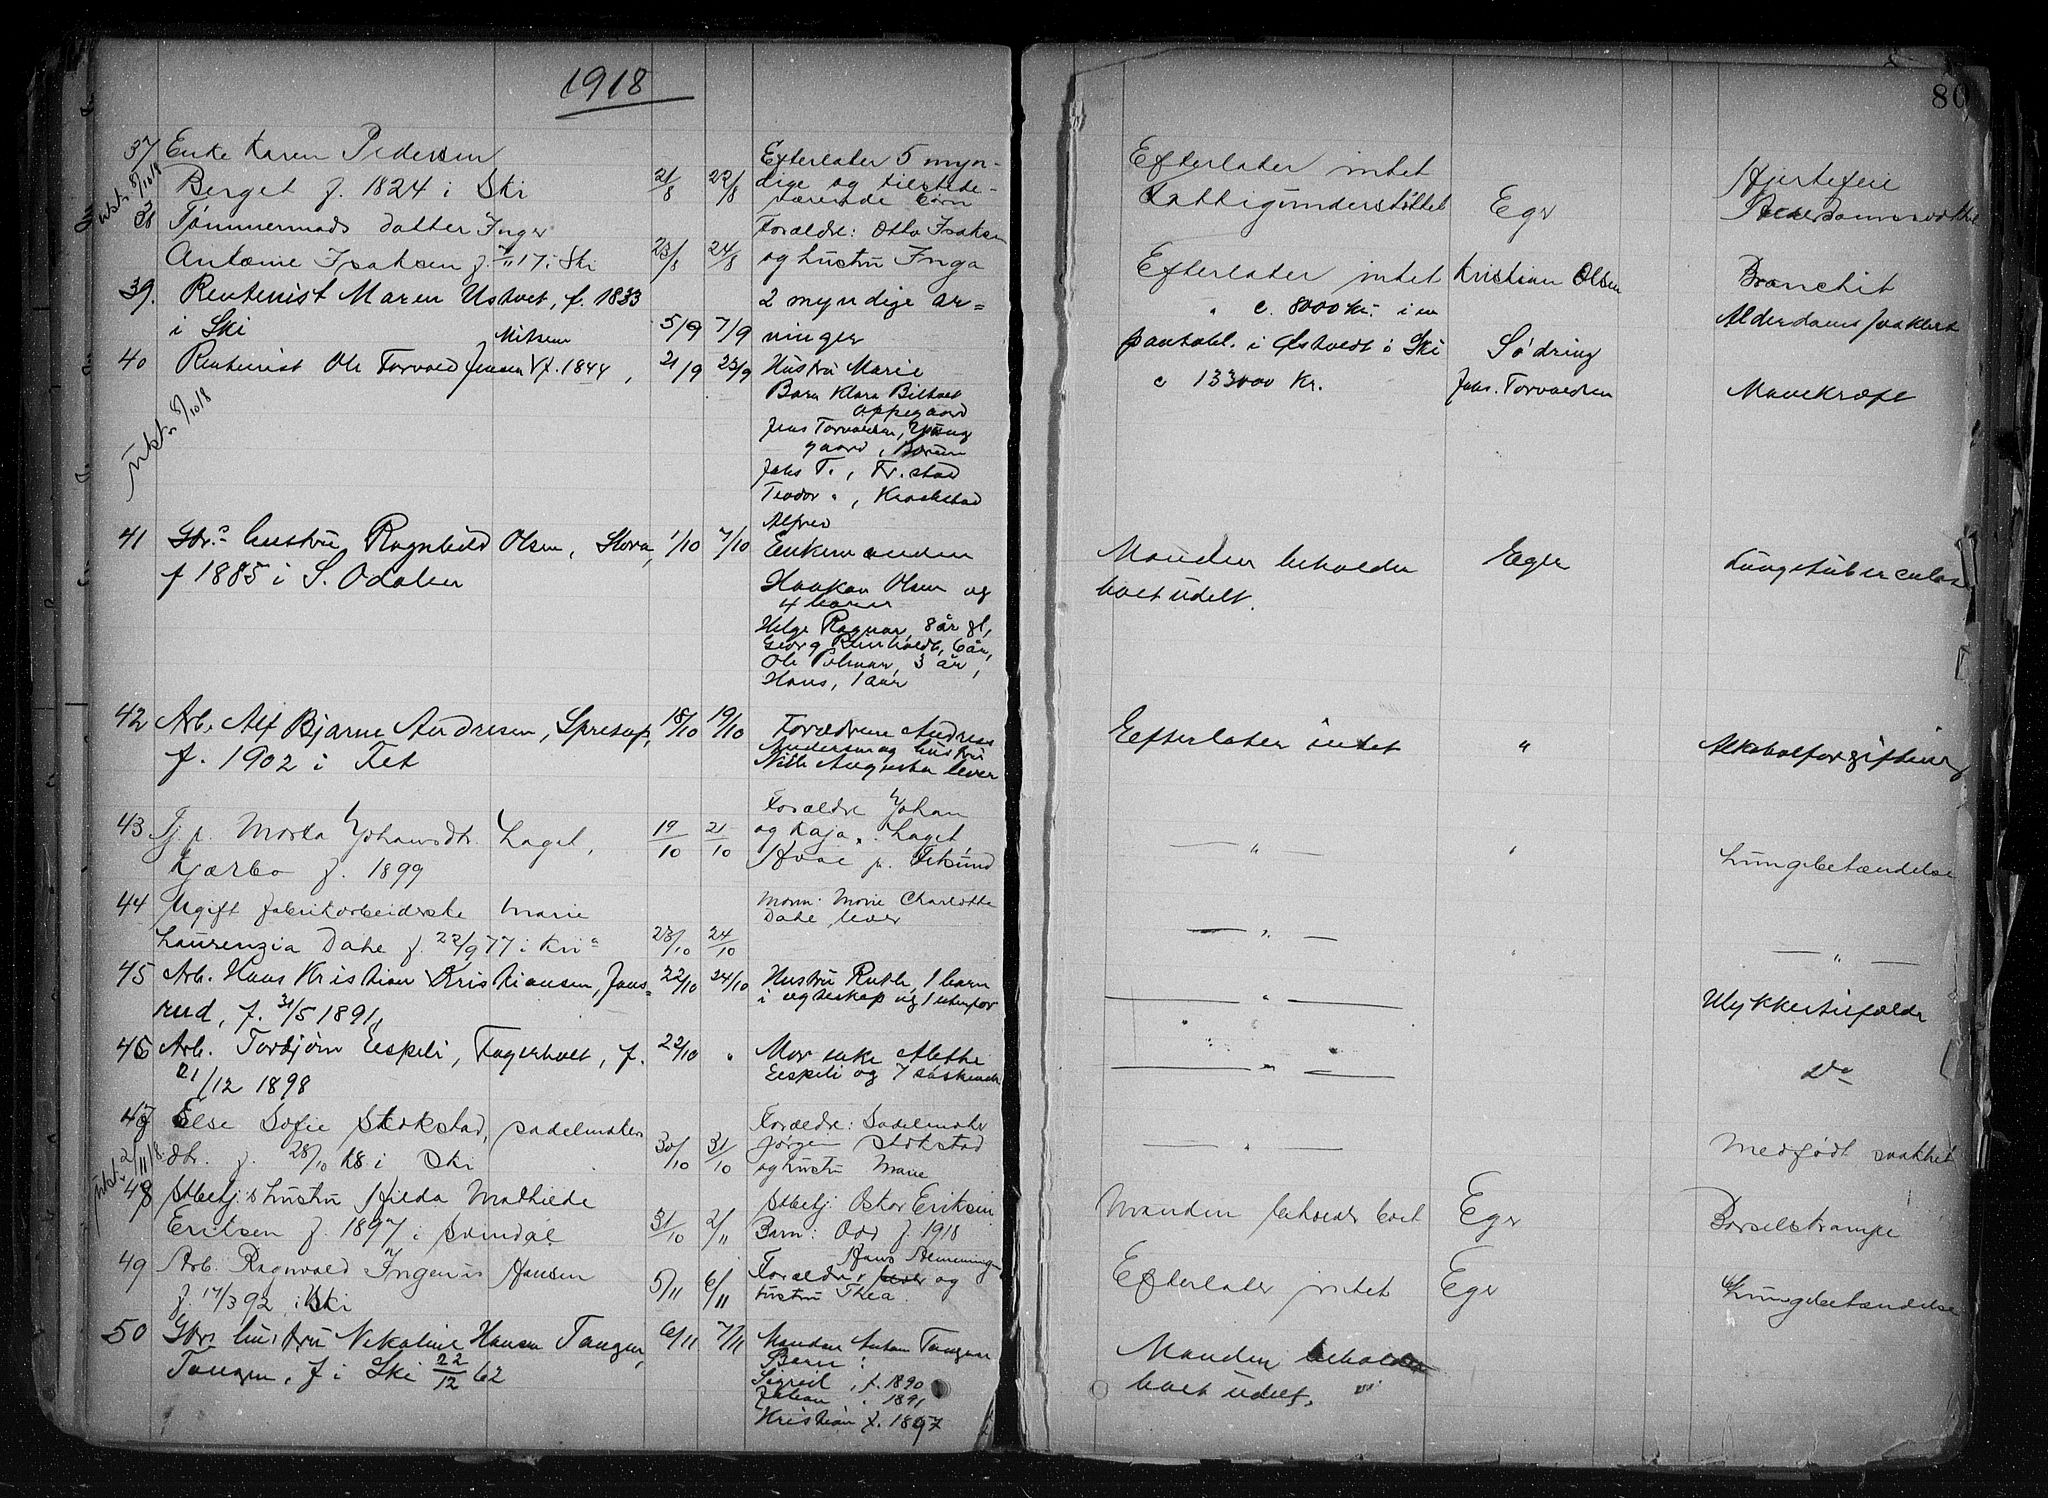 1918
80
37 Enke Karen Pedersen
Berget f. 1824 i Ski 21/8 22/8
Efterlater 5 myn-
dige og tilstede-
værende børn
Efterlater intet
Fattigunderstøttet Eger
Hjertefeil
ukst. 8/10 18
38 Tømmermads datter Inger
Antonie Isaksen f. 17 i Ski 23/8 24/8
Forældre: Otto Isaksen
og hustru Inga
Efterlater intet Kristian Olsen
Bronchit
39. Rentenist Maren Ustvet, f. 1833
i Ski 5/9 7/9
2 myndige ar-
vinger
" c. 8000 kr. i en
pantobl. i Østvedt i Ski Södring
Alderdomssvakhet
40 Rentenist Ole Torvald Jensen f. 1844, 21/9 23/9
Hustru Marie
Barn Klara
Oppegaard
Jens Torvaldsen,
gaard, Bærum
Johs T., Fr.stad
Teodor ", Kraakstad
Alfred
c 133000 Kr. Johs. Torvaldsen
Mavekræft
ukst. 8/10 18
41 Gbr.s hustru Ragnhild Olsen, Stora, 1/10 7/10
f 1885 i S. Odalen
Enkemanden
Haakon Olsen og
4 barn
Helge Ragnar, 8 år gl,
Georg Reinholdt, 6 år,
Ole 3 år,
Hans, 1 aar
Manden beholder
boet udelt. Eger
Lungetuberculose
42 Arb. Alf Bjarne Andresen, Spretop, 18/10 19/10
f. 1902 i Fet
Forældrene Andreas
Andersen og hustru
Augusta lever
Efterlater intet "
Alkoholforgiftning
43 Tj.p. Marta Johansdtr. Laget, 19/10 21/10
Kjærbo f. 1899
Forældre Johan
og Kaja ". Laget,
— " — "
Lungebetændelse
44 Ugift fabrikarbeiderske Marie
Laurenzia Dahl f. 22/9 77 i Kria 23/10 24/10
Mor: Marie Charlotte
Dahl lever
— " — "
— " —
45 Arb. Hans Kristian Kristiansen, Jans- 22/10 24/10
rud, f. 31/5 1891
Hustru Ruth, 1 barn
i egteskap og 1 utenfor
— " —
Ulykkestilfælde
46 Arb. Torbjørn Eespeli, Fagerholt, f. 22/10 "
21/12 1898
Mor enke Alethe
Eespeli og 7 søskende
— " —
Do
47 Else Sofie Stokstad, sadelmaker-
dtr. f. 28/10 18 i Ski 30/10 31/10
Forældre: Sadelmaker
Jørgen Stokstad
og hustru Marie
— " —
Medfødt svakhet
ukst. 2/11 18.
48 Stbetj.s hustru Hilda Mathilde
Eriksen f. 1897 i Svindal 31/10 2/11
Stbetj. Oskar Eriksen
Barn: Odd f. 1918
Manden beholder boet Eger
Barselskrampe
49 Arb. Ragnvald Ingenius Hansen
f. 17/3 92 i Ski 5/11 6/11
Forældre Hans Hemmingsen og
hustru Thea.
Efterlater intet Eger
Lungebetændelse
50 Gbrs hustru Nikoline Hansen Tangen, 6/11 7/11
Tangen, f i Ski 22/12 62
Manden Anton Tangen
Barn:
Sigrid, f. 1890
Johan " 1891
Kristian f. 1897
Manden beholder
boet udelt.